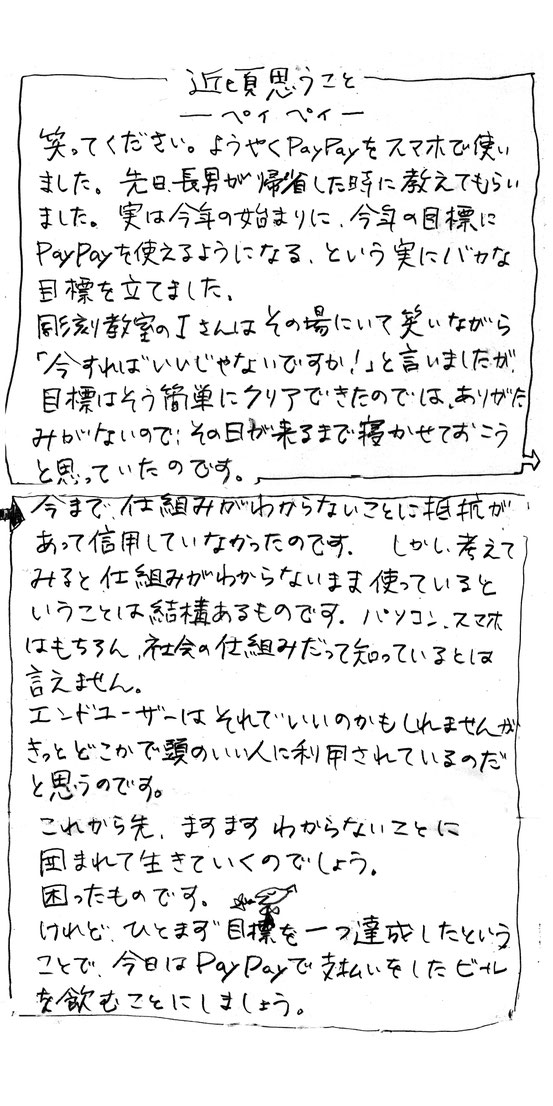 近頃思うこと
ーペイペイー
笑ってください。ようやくPayPayをスマホで使い
ました。先日、長男が帰省した時に教えてもらい
ました。実は今年の始まりに、今年の目標に
PayPayを使えるようになる、という実にバカな
目標を立てました、
彫刻教室のIさんはその場にいて笑いながら
「今すればいいじゃないですか!」と言いましたが、
目標はそう簡単にクリアできたのでは、ありがた
みがないので、その日が来るまで寝かせておこう
と思っていたのです。
今まで、仕組みがわからないことに抵抗が
あって信用していなかったのです。しかし、考えて
みると仕組みがわからないまま使っていると
いうことは結構あるものです。パソコン、スマホ
はもちろん、社会の仕組みだって知っているとは
言えません。
エンドユーザーはそれでいいのかもしれませんが
きっとどこかで頭のいい人に利用されているのだ
と思うのです。
これから先、ますますわからないことに
囲まれて生きていくのでしょう。
困ったものです。
けれど、ひとまず目標を一つ達成したという
ことで、今日はPayPayで支払いをしたビール
を飲むことにしましょう。